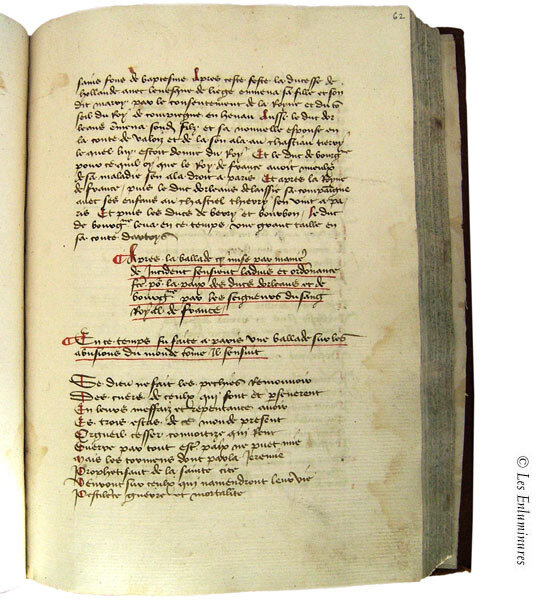 62
sains fons de baptesme Apres ceste feste la ducesse de
hollande avec levesque de liege enmena sa fille et son
dit mary par le consentement de la Royne et du
seil du Roy de compiegne en henau Aussi le duc dor
leans enmena son filz et sa nouvelle espouse en
la conte de valois et de la son ala au chastiau tierry
lequel luy estoit donne du Roy Et le duc de bourgne
pour ce quil oy que le Roy de france avoit
de sa maladie son ala droit a paris Et apres la Royne
de france puis le duc dorleans delaissie sa compaignie
avec ses enfans au chastiel thierry son vint a pa
ris Et puis les ducs de berry et bourbon le duc
de bourgne leva en ce temps une grant taille en
sa conte dartois
Apres la ballade qui mise par manie
de Incident sensient ladvis et ordonance
po la paix des ducs dorleans et de
bourgne par les seigneurs du sang
Royal de france
En ce temps fu faite a paris une ballade sur les
abusions du monde come Il sensuit
Se dieu ne fait les pechies Remouvoir
Des cuers de ceulx qui sont et perseverent
En leurs meffais et repentance avoir
Les trois estas de ce monde present
Orgueil cesser convoitise qui
Guerre par tout est paix ne puet
Mais les tormens dont parla Jeremie
Prophetisant de la sainte cite
Venront sur ceulx qui namendront leur vie
Pestilence guerre et mortalite
© Les Enluminures